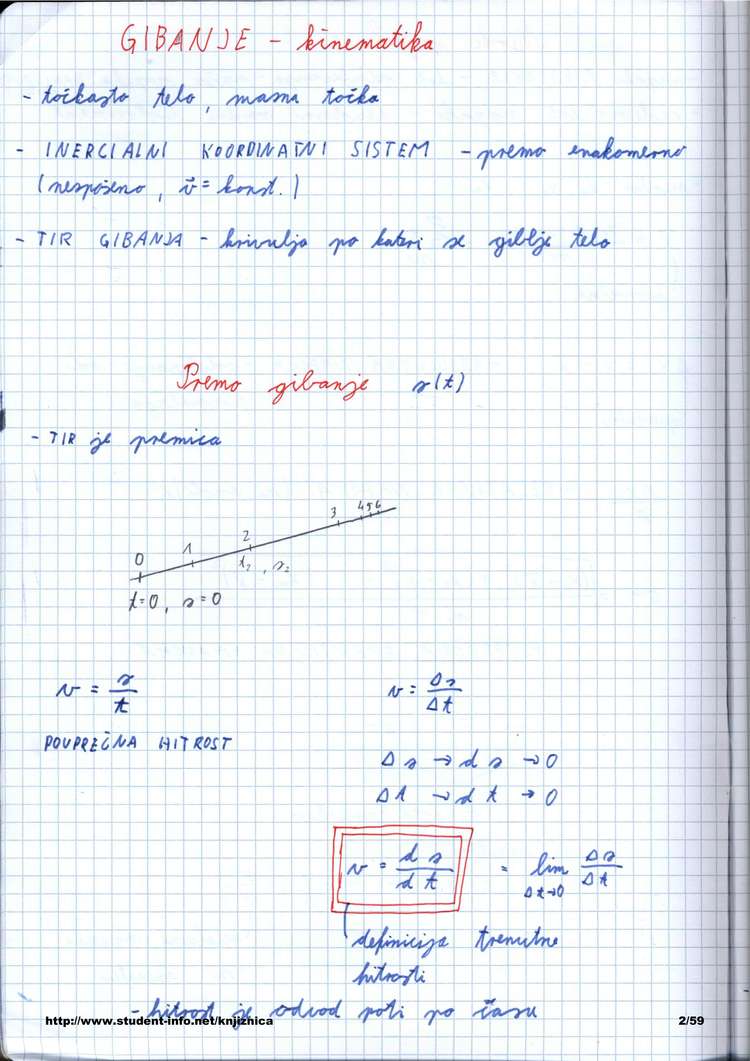 GIBANJE - kinematika
- točkasto telo, masna točka
- INERCIALNI KOORDINATNI SISTEM - premo enakomerno
(nespešeno, v⃗ = konst.)
- TIR GIBANJA - krivulja po kateri se giblje telo
Premo gibanje s(t)
- TIR je premica
0 1 2 3 4 5 6
t=0, s=0 t₂, s₂
v = s/t v = Δs/Δt
POVPREČNA HITROST
Δs → ds → 0
Δt → dt → 0
v = ds/dt = lim Δt→0 Δs/Δt
definicija trenutne
hitrosti
- hitrost je odvod poti po času
http://www.student-info.net/knjiznica 2/59